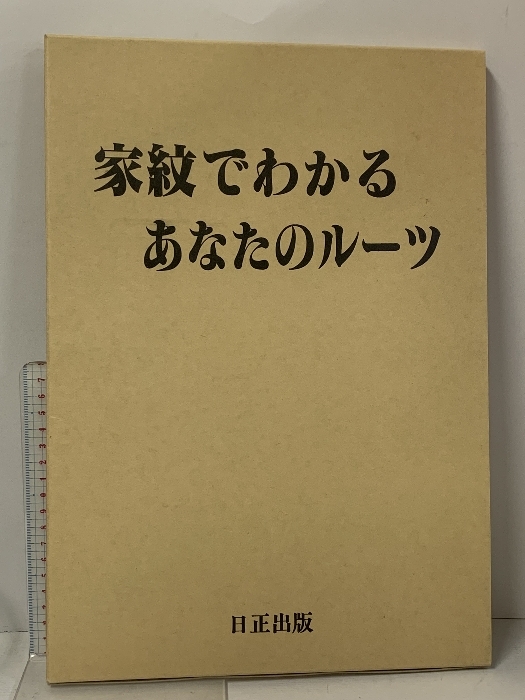 家紋でわかる
あなたのルーツ
日正出版